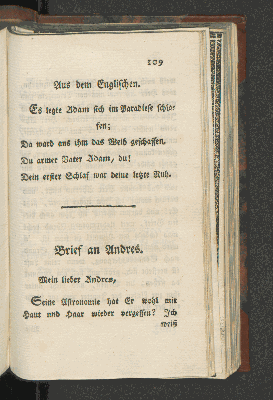 109
Aus dem Englischen.
Es legte Adam sich im Paradiese schla-
fen;
Da ward aus ihm das Weib geschaffen.
Du armer Vater Adam, du!
Dein erster Schlaf war deine letzte Ruh.
Brief an Andres.
Mein lieber Andres,
Seine Astronomie hat Er wohl mit
Haut und Haar wieder vergessen? Ich
weiß